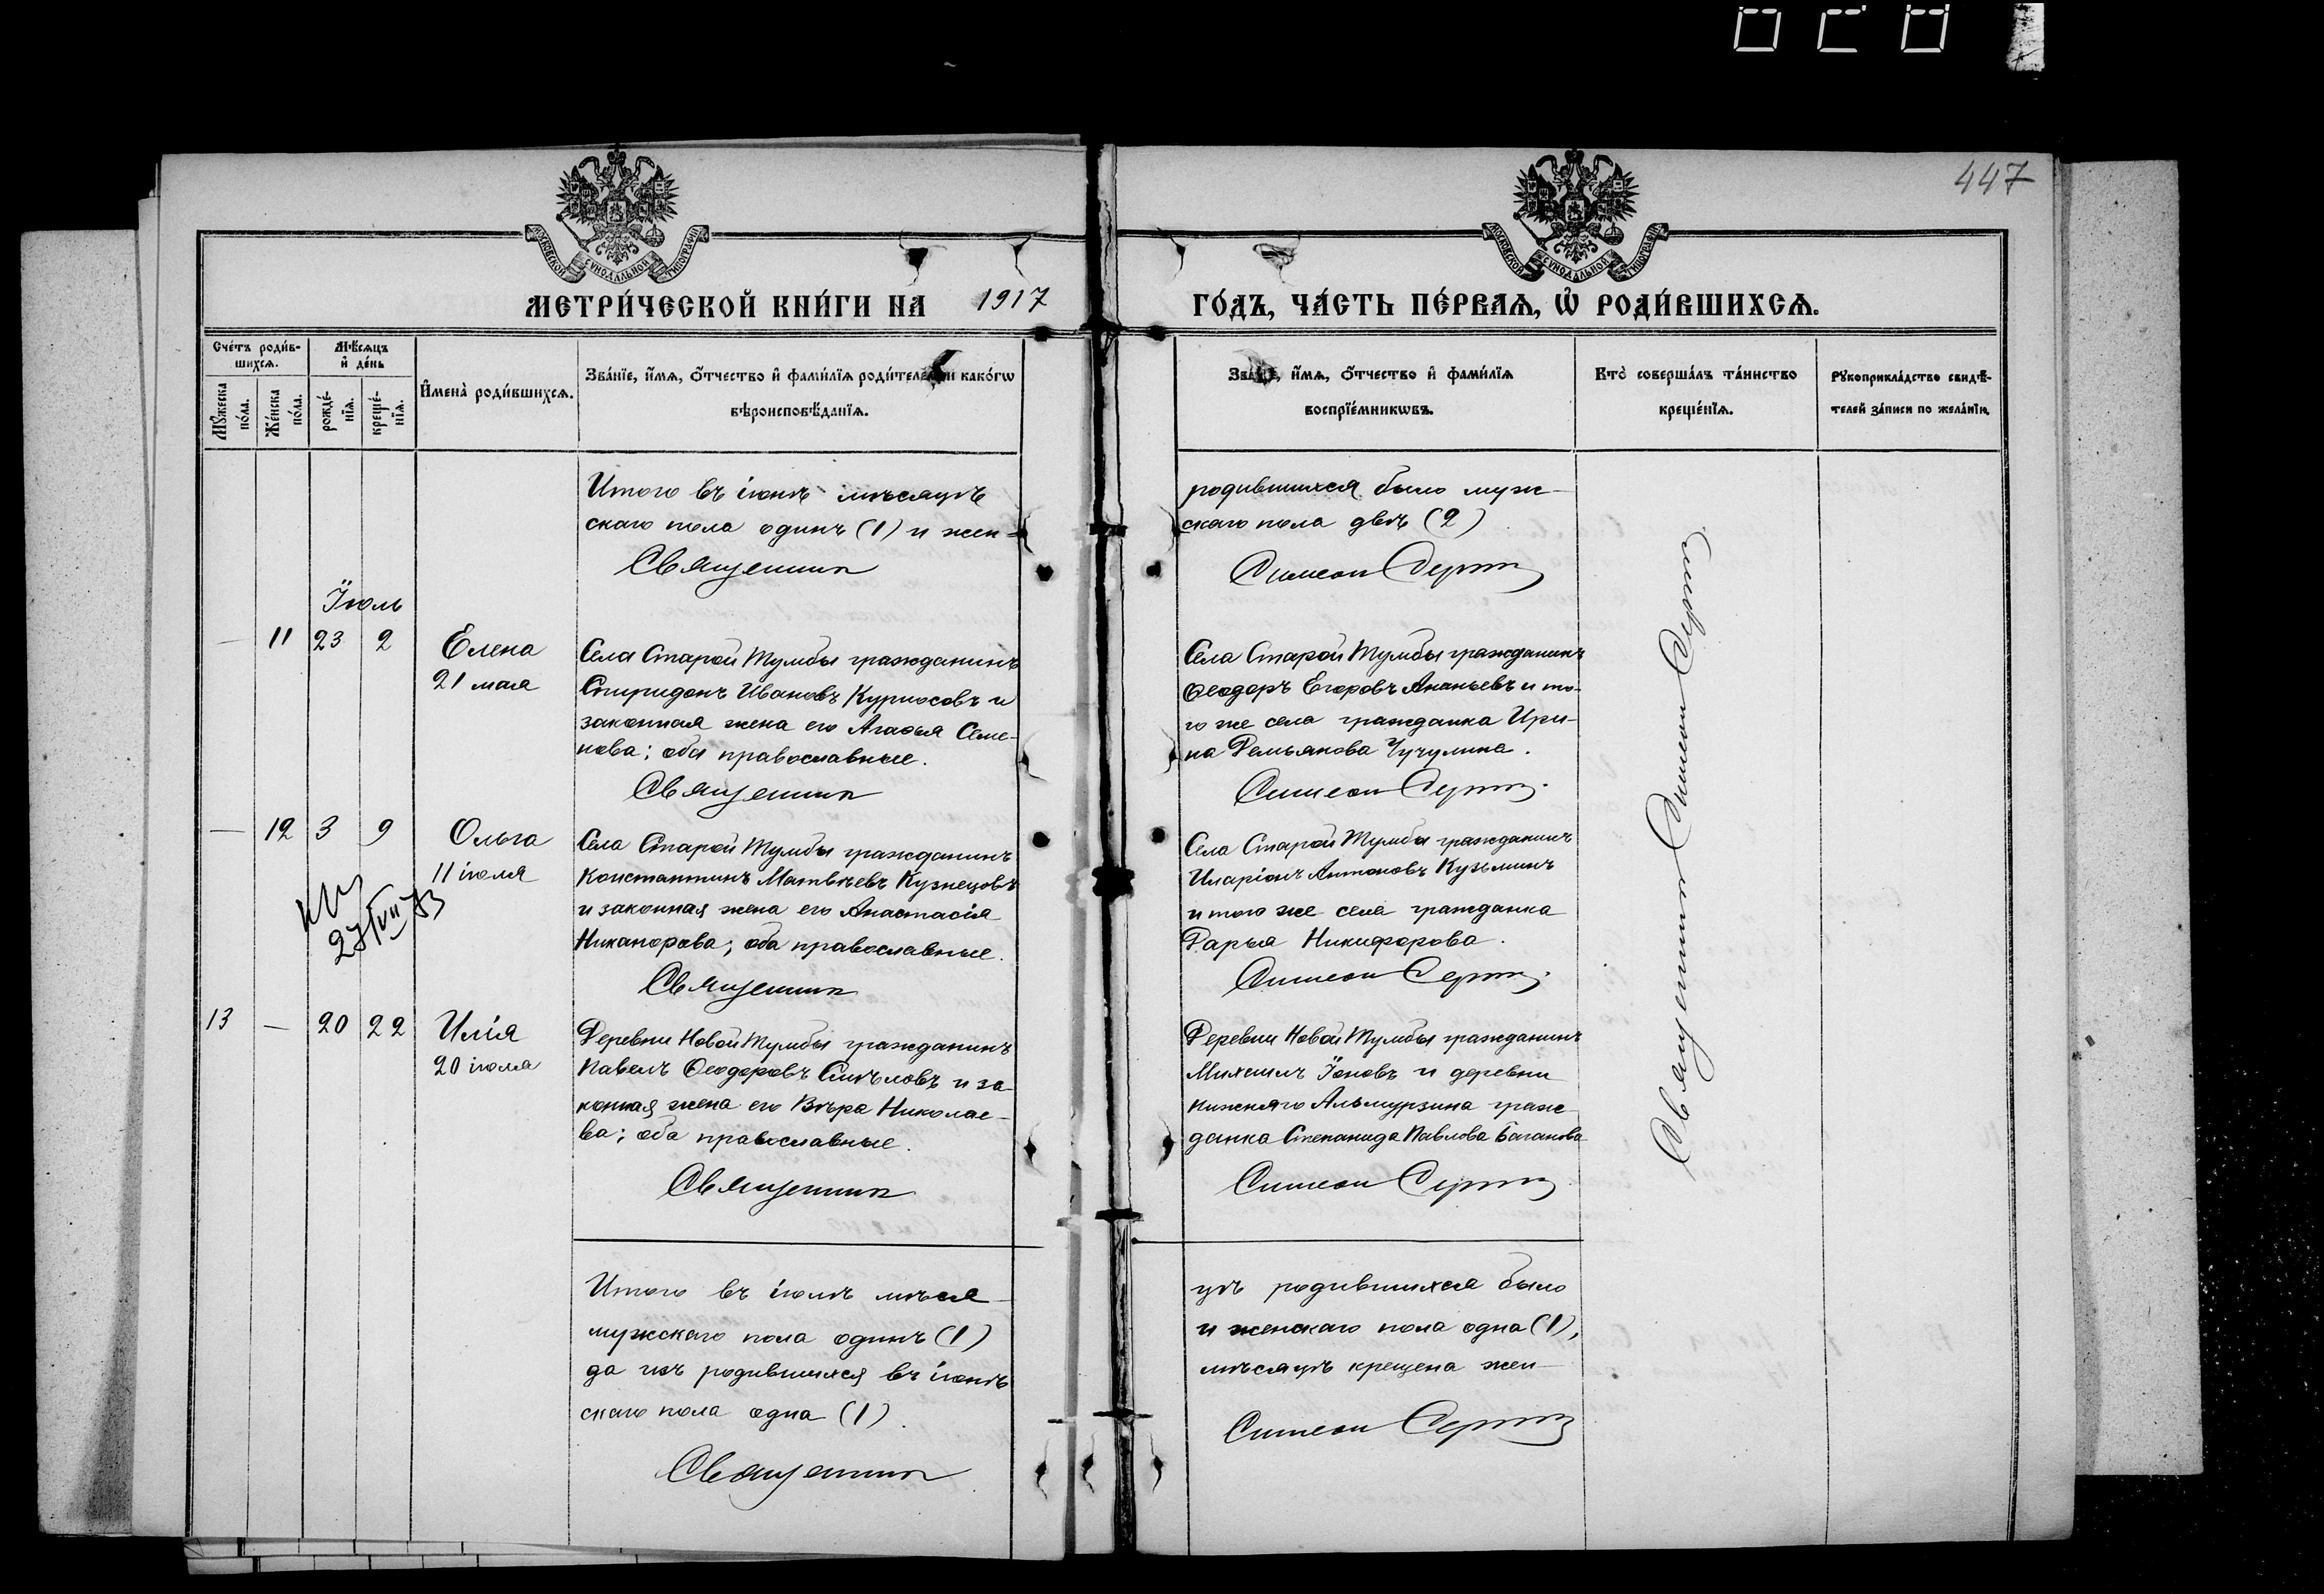 447
МОСКОВСКОЙ СѴНОДАЛЬНОЙ ТИПОГРАФІИ
МОСКОВСКОЙ СѴНОДАЛЬНОЙ ТИПОГРАФІИ
МЕТРИ́ЧЕСКОЙ КНИ́ГИ НА 1917 ГО́ДЪ, ЧА́СТЬ ПЕ́РВАѦ, Ѡ҆ РОДИ́ВШИХСѦ.
Сче́тъ роди́в-
шихсѧ.
Мѣ́сѧцъ
и҆ де́нь
Мꙋ́жеска
по́ла.
Же́нска
по́ла.
рожде́-
нїѧ.
креще́-
нїѧ.
И҆мена̀ роди́вшихсѧ.
Зва́нїе, и҆́мѧ, ѻ҆́тчество и҆ фами́лїѧ роди́телей и како́гѡ
вѣроисповѣ́данїѧ.
Зва́нїе, и҆́мѧ, ѻ҆́тчество и҆ фами́лїѧ
воспрїе́мникѡвъ.
Кто̀ соверша́лъ та́инство
креще́нїѧ.
Рꙋкоприкла́дство свидѣ́-
телей за́писи по жела́нїю.
Итого въ іюнѣ мѣсяцѣ
скаго пола одинъ (1) и жен-
Священникъ
родившихся было муж-
скаго пола двѣ (2)
Симеон
Їюль
— 11 23 2
Елена
21 мая
Села Старой Тумбы гражданинъ
Спиридонъ Ивановъ Курносовъ и
законная жена его Агаѳья Семе-
нова; оба православные.
Священникъ
Села Старой Тумбы гражданинъ
Ѳеодоръ Егоровъ Ананьевъ и то-
го же села гражданка Ири-
на Демьянова Чучулина.
Симеон
— 12 3 9
Ольга
11 іюля
27/VII 73
Села Старой Тумбы гражданинъ
Константинъ Матвѣевъ Кузнецовъ
и законная жена его Анастасія
Никанорова; оба православные.
Священникъ
Села Старой Тумбы гражданинъ
Иларіонъ Антоновъ Кузьминъ
и того же села гражданка
Дарья Никифорова.
Симеон
13 — 20 22
Илія
20 іюля
Деревни Новой Тумбы гражданинъ
Павелъ Ѳеодоровъ Смѣловъ и за-
конная жена его Вѣра Николае-
ва; оба православные.
Священникъ
Деревни Новой Тумбы гражданинъ
Михаилъ Їоновъ и деревни
Нижняго Альмурзина граж-
данка Степанида Павлова Баганова
Симеон
Священникъ Симеон
Итого въ іюлѣ мѣся-
мужскаго пола одинъ (1)
да изъ родившихся въ іюнѣ
скаго пола одна (1).
Священникъ
цѣ родившихся было
и женскаго пола одна (1),
мѣсяцѣ крещена жен-
Симеон